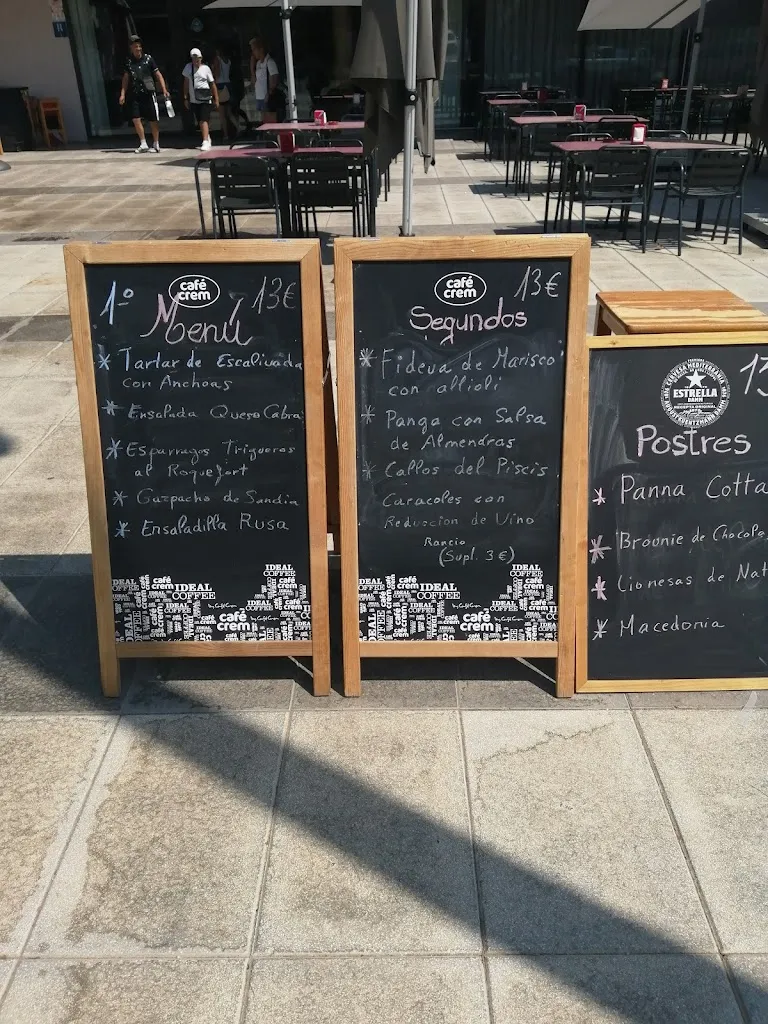 café
crem
1º
13€
Menú
* Tartar de Escalivada
con Anchoas
* Ensalada Queso Cabra
* Esparragos Trigueros
al Roquefort
* Gazpacho de Sandia
* Ensaladilla Rusa
IDEAL
COFFEE
café
crem
café
crem
13€
Segundos
* Fideua de Marisco
con allioli
* Panga con Salsa
de Almendras
* Callos del Piscis
Caracoles con
Reduccion de Vino
Rancio
(Supl. 3€)
IDEAL
COFFEE
café
crem
13
ESTRELLA
DAMM
Postres
* Panna Cotta
* Brounie de Chocola
* Lionesas de Nat
* Macedonia